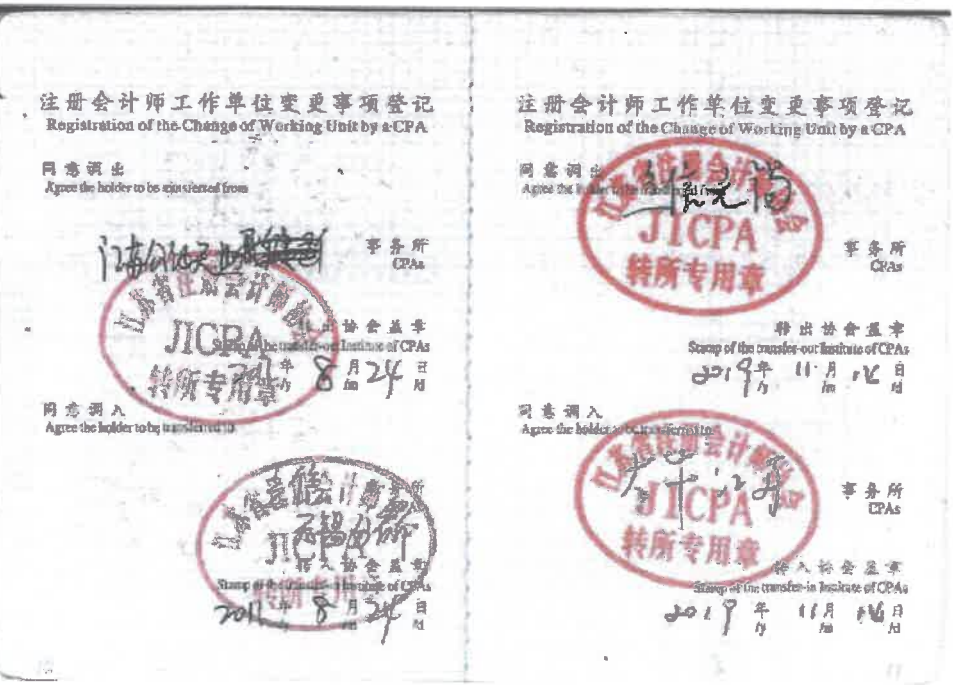 注册会计师工作单位变更事项登记
Registration of the Change of Working Unit by a CPA
同意调出
Agree the holder to be transferred from
事务所
CPAs
江苏省注册会计师协会
JICPA
转所专用章
转出协会盖章
Stamp of the transfer-out Institute of CPAs
2011年8月24日
/y /m /d
同意调入
Agree the holder to be transferred to
江苏省注册会计师协会
JICPA
转所专用章
无锡分所
事务所
转入协会盖章
Stamp of the transfer-in Institute of CPAs
2011年8月24日
/y /m /d
10
注册会计师工作单位变更事项登记
Registration of the Change of Working Unit by a CPA
同意调出
Agree the holder to be transferred from
江苏省注册会计师协会
JICPA
转所专用章
事务所
CPAs
转出协会盖章
Stamp of the transfer-out Institute of CPAs
2019年11月日
/y /m /d
同意调入
Agree the holder to be transferred to
江苏省注册会计师协会
JICPA
转所专用章
事务所
CPAs
转入协会盖章
Stamp of the transfer-in Institute of CPAs
2019年11月日
/y /m /d
11